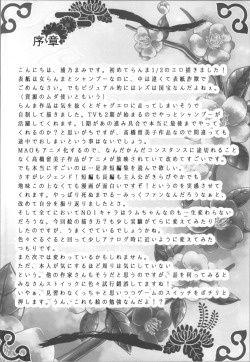 序章
こんにちは、捕うまみです。初めてらんま1/2のエロ描きました!
表紙は女らんまとシャンプーなのに、中は違くて表紙詐欺で
ごめんなさい。でもビジュアル的にはレズは国宝なんだよねぇ。
(言葉のムダ使いともいう)
らんま作品は気を抜くとギャグエロに走ってしまいそうで
自制して描きました。TVも2期が始まるのでやっとシャンプーが
活躍してくれます。1期があの進み具合で本当に最後までやって
くれるのか?と思いがちですが、高橋留美子作品なので間違っても
途中でおしまいという事はないでしょう。
MAOもアニメ化するので、なんだかコンスタンスに途切れること
なく高橋留美子作品がアニメが放映されていて改めてすごいです。
でも本当にすごいのは一是非短編集を読んで欲しい。
ですがレジェンド!短編も長編も主人公が魅力的でとかも
地味このなくても漫画が面白いです!というのを実感させて
くれます。やっぱり死ぬまでるーみっくファンなんだろうなぁと、
改めて自分を振り返りましたとさ。
そして全てにおいてNO1キャラはラムちゃんなのも一生変わらない
だろうな。今回絵の描き方も少し気纏がてらに変えてみたり
したのですが、うまくやているでしょうかね。
色々ぐるぐると回って少しアナログ時に近いように変えてみた
つもりです。
また次では変わっているかもしれません。
ただ、本人が気にするほど周りは気にしていない
という。他の作家さんもそうだと思うのですが、話を伺ってみると
みなさんストイックに色々試行錯誤してますね!
いやぁ、見習わなくっちゃと思いつつゲームのスイッチをポチリと
押します。うん、これも絵の勉強なんだよ!?